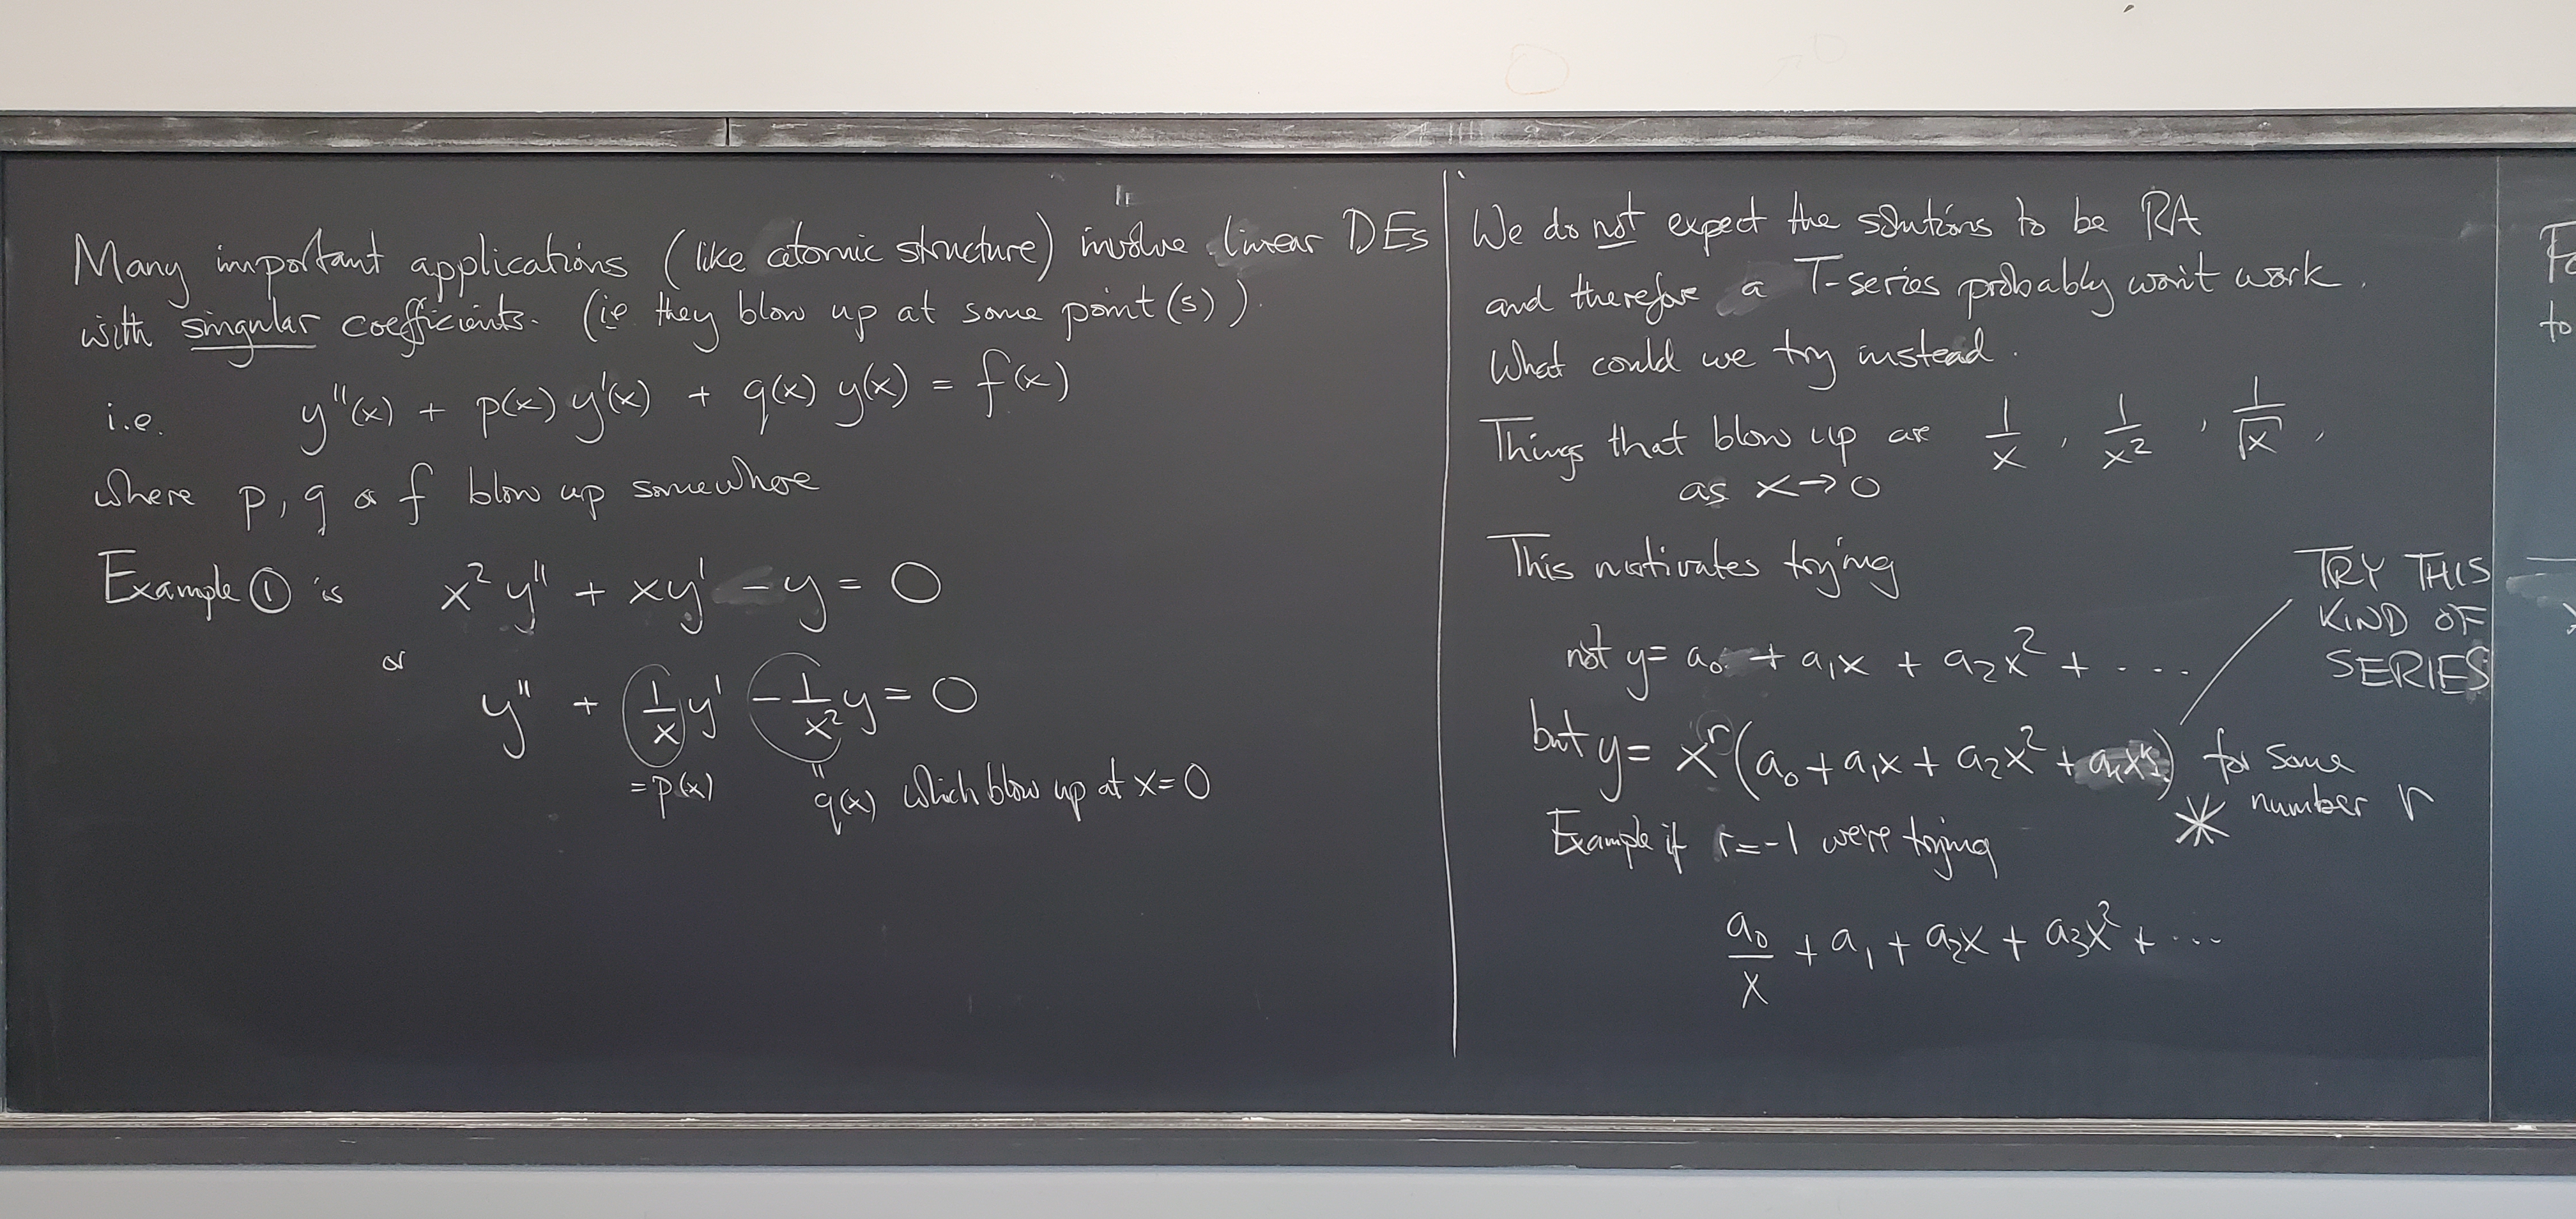 Many important applications (like atomic structure) involve linear DEs
with singular coefficients. (ie they blow up at some point(s)).
i.e. y''(x) + p(x) y'(x) + q(x) y(x) = f(x)
where p, q or f blow up somewhere
Example ① is x² y'' + xy' - y = 0
or
y'' + (1/x) y' - 1/x² y = 0
= p(x) " q(x) which blow up at x=0
We do not expect the solutions to be RA
and therefore a T-series probably won't work.
What could we try instead.
Things that blow up are 1/x, 1/x², 1/√x,
as x→0
This motivates trying
TRY THIS
KIND OF
SERIES
not y= a₀ + a₁x + a₂x² + ....
but y= xʳ(a₀ + a₁x + a₂x² + ) for some
number r
*
Example if r=-1 we're trying
a₀/x + a₁ + a₂x + a₃x² + ...
to